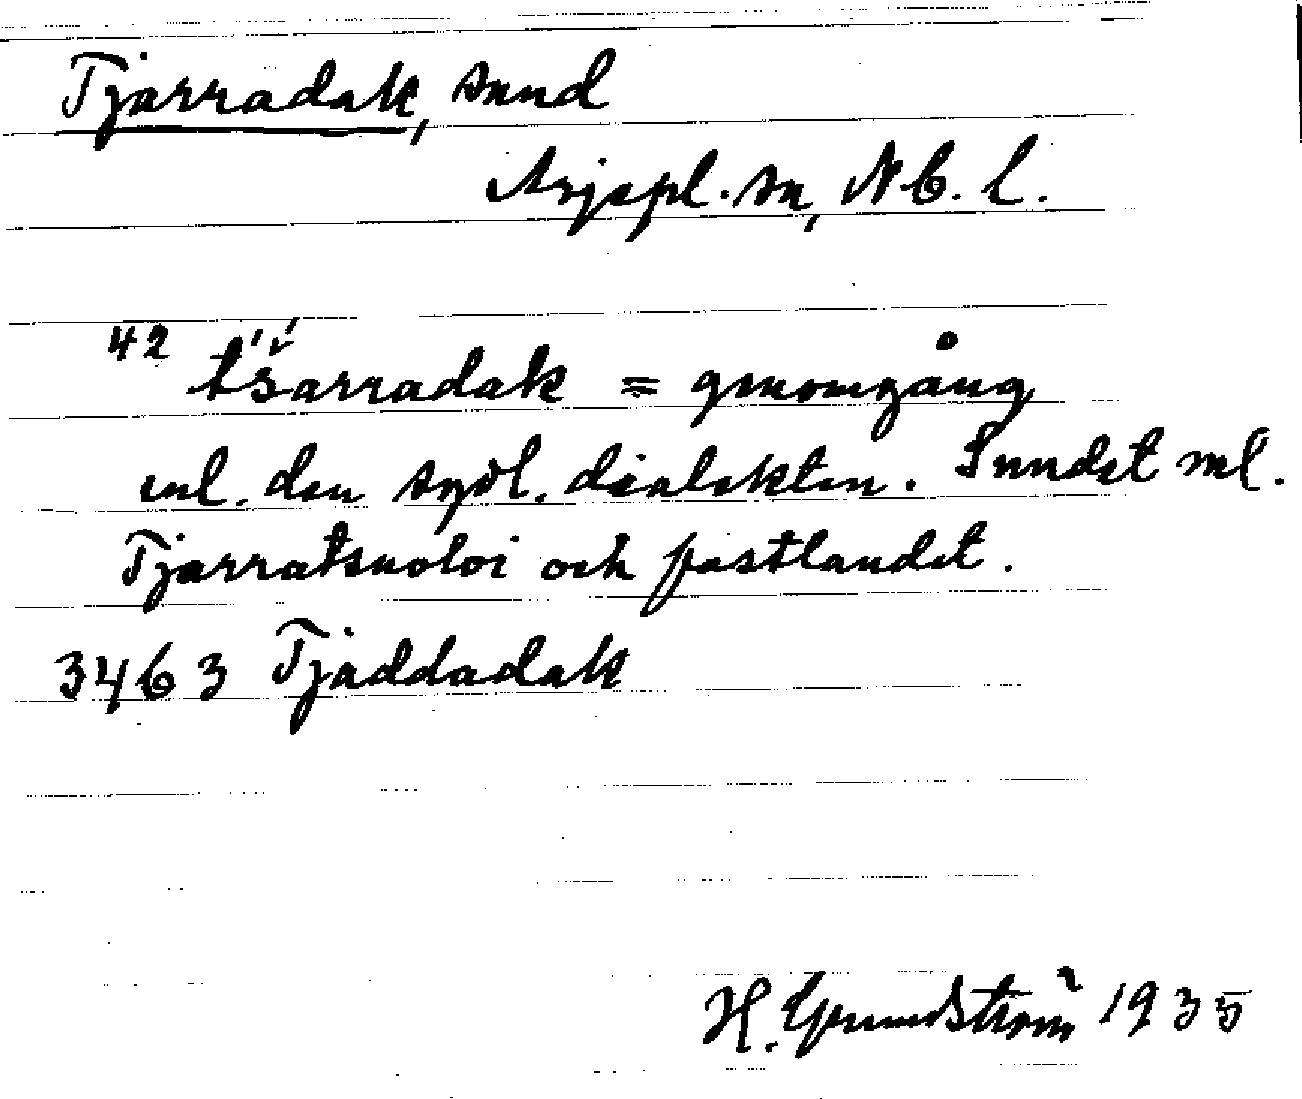 Tjarradak, sund
Arjepl. sn, Nb. l.
42 t'š'arradak = genomgång
enl. den sydl. dialekten. Sundet ml.
Tjarratsuoloi och fastlandet.
3463 Tjåddadak
H. Grundström 1935